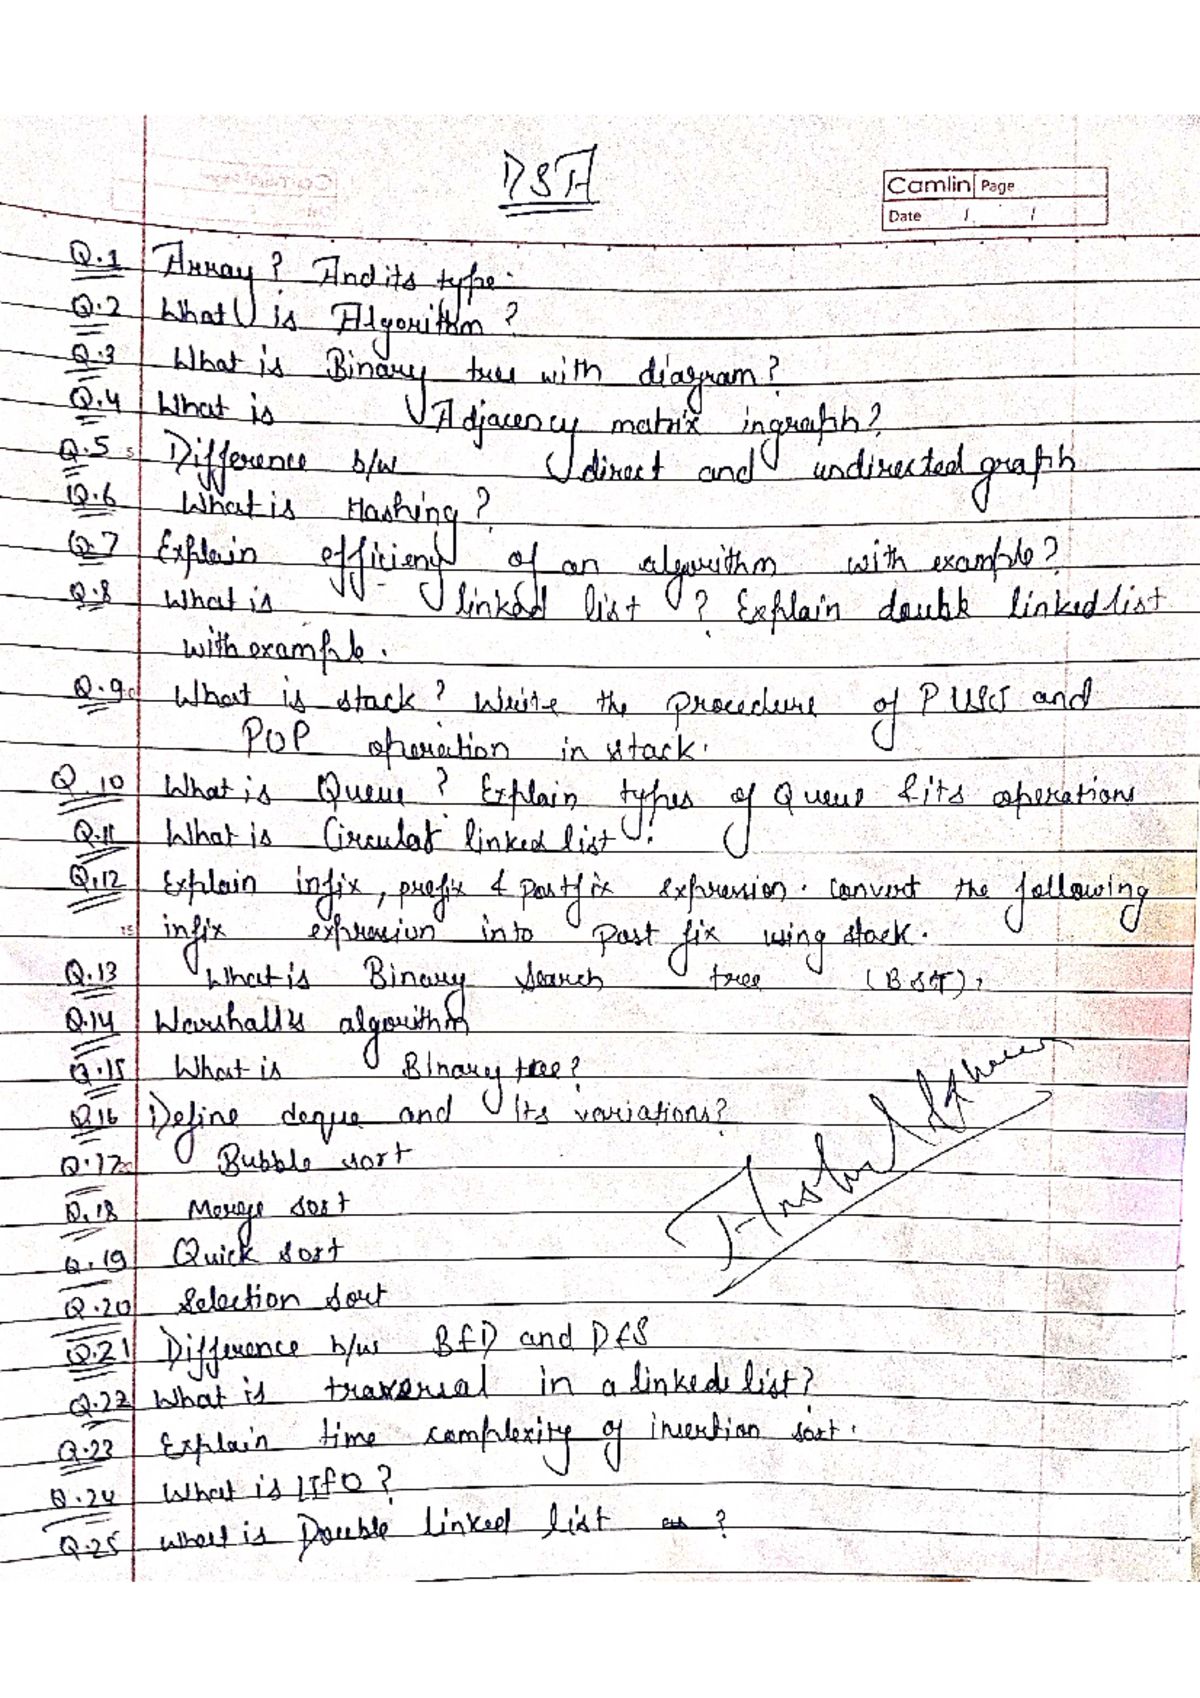 DSA
Camlin Page
Date / /
Q.1 Array? And its type.
Q.2 What is Algorithm?
Q.3 What is Binary tree with diagram?
Q.4 What is Adjacency matrix in graph?
Q.5 Difference b/w direct and undirected graph
Q.6 What is Hashing?
Q.7 Explain efficieny of an algorithm with example?
Q.8 What is linked list? Explain double linked list
with example.
Q.9 What is stack? Write the procedure of PUSH and
POP operation in stack.
Q.10 What is Queue? Explain types of Queue & its operations
Q.11 What is Circular linked list?
Q.12 Explain infix, prefix & postfix expression. Convert the following
15 infix expression into post fix using stack.
Q.13 What is Binary search tree (BST).
Q.14 Warshall's algorithm
Q.15 What is Binary tree?
Q.16 Define deque and its variations?
Q.17 Bubble sort
Q.18 Merge sort
Q.19 Quick sort
Q.20 Selection sort
Q.21 Difference b/w BFD and DFS
Q.22 What is traversal in a linked list?
Q.23 Explain time complexity of insertion sort.
Q.24 What is LIFO?
Q.25 What is Double linked list ?